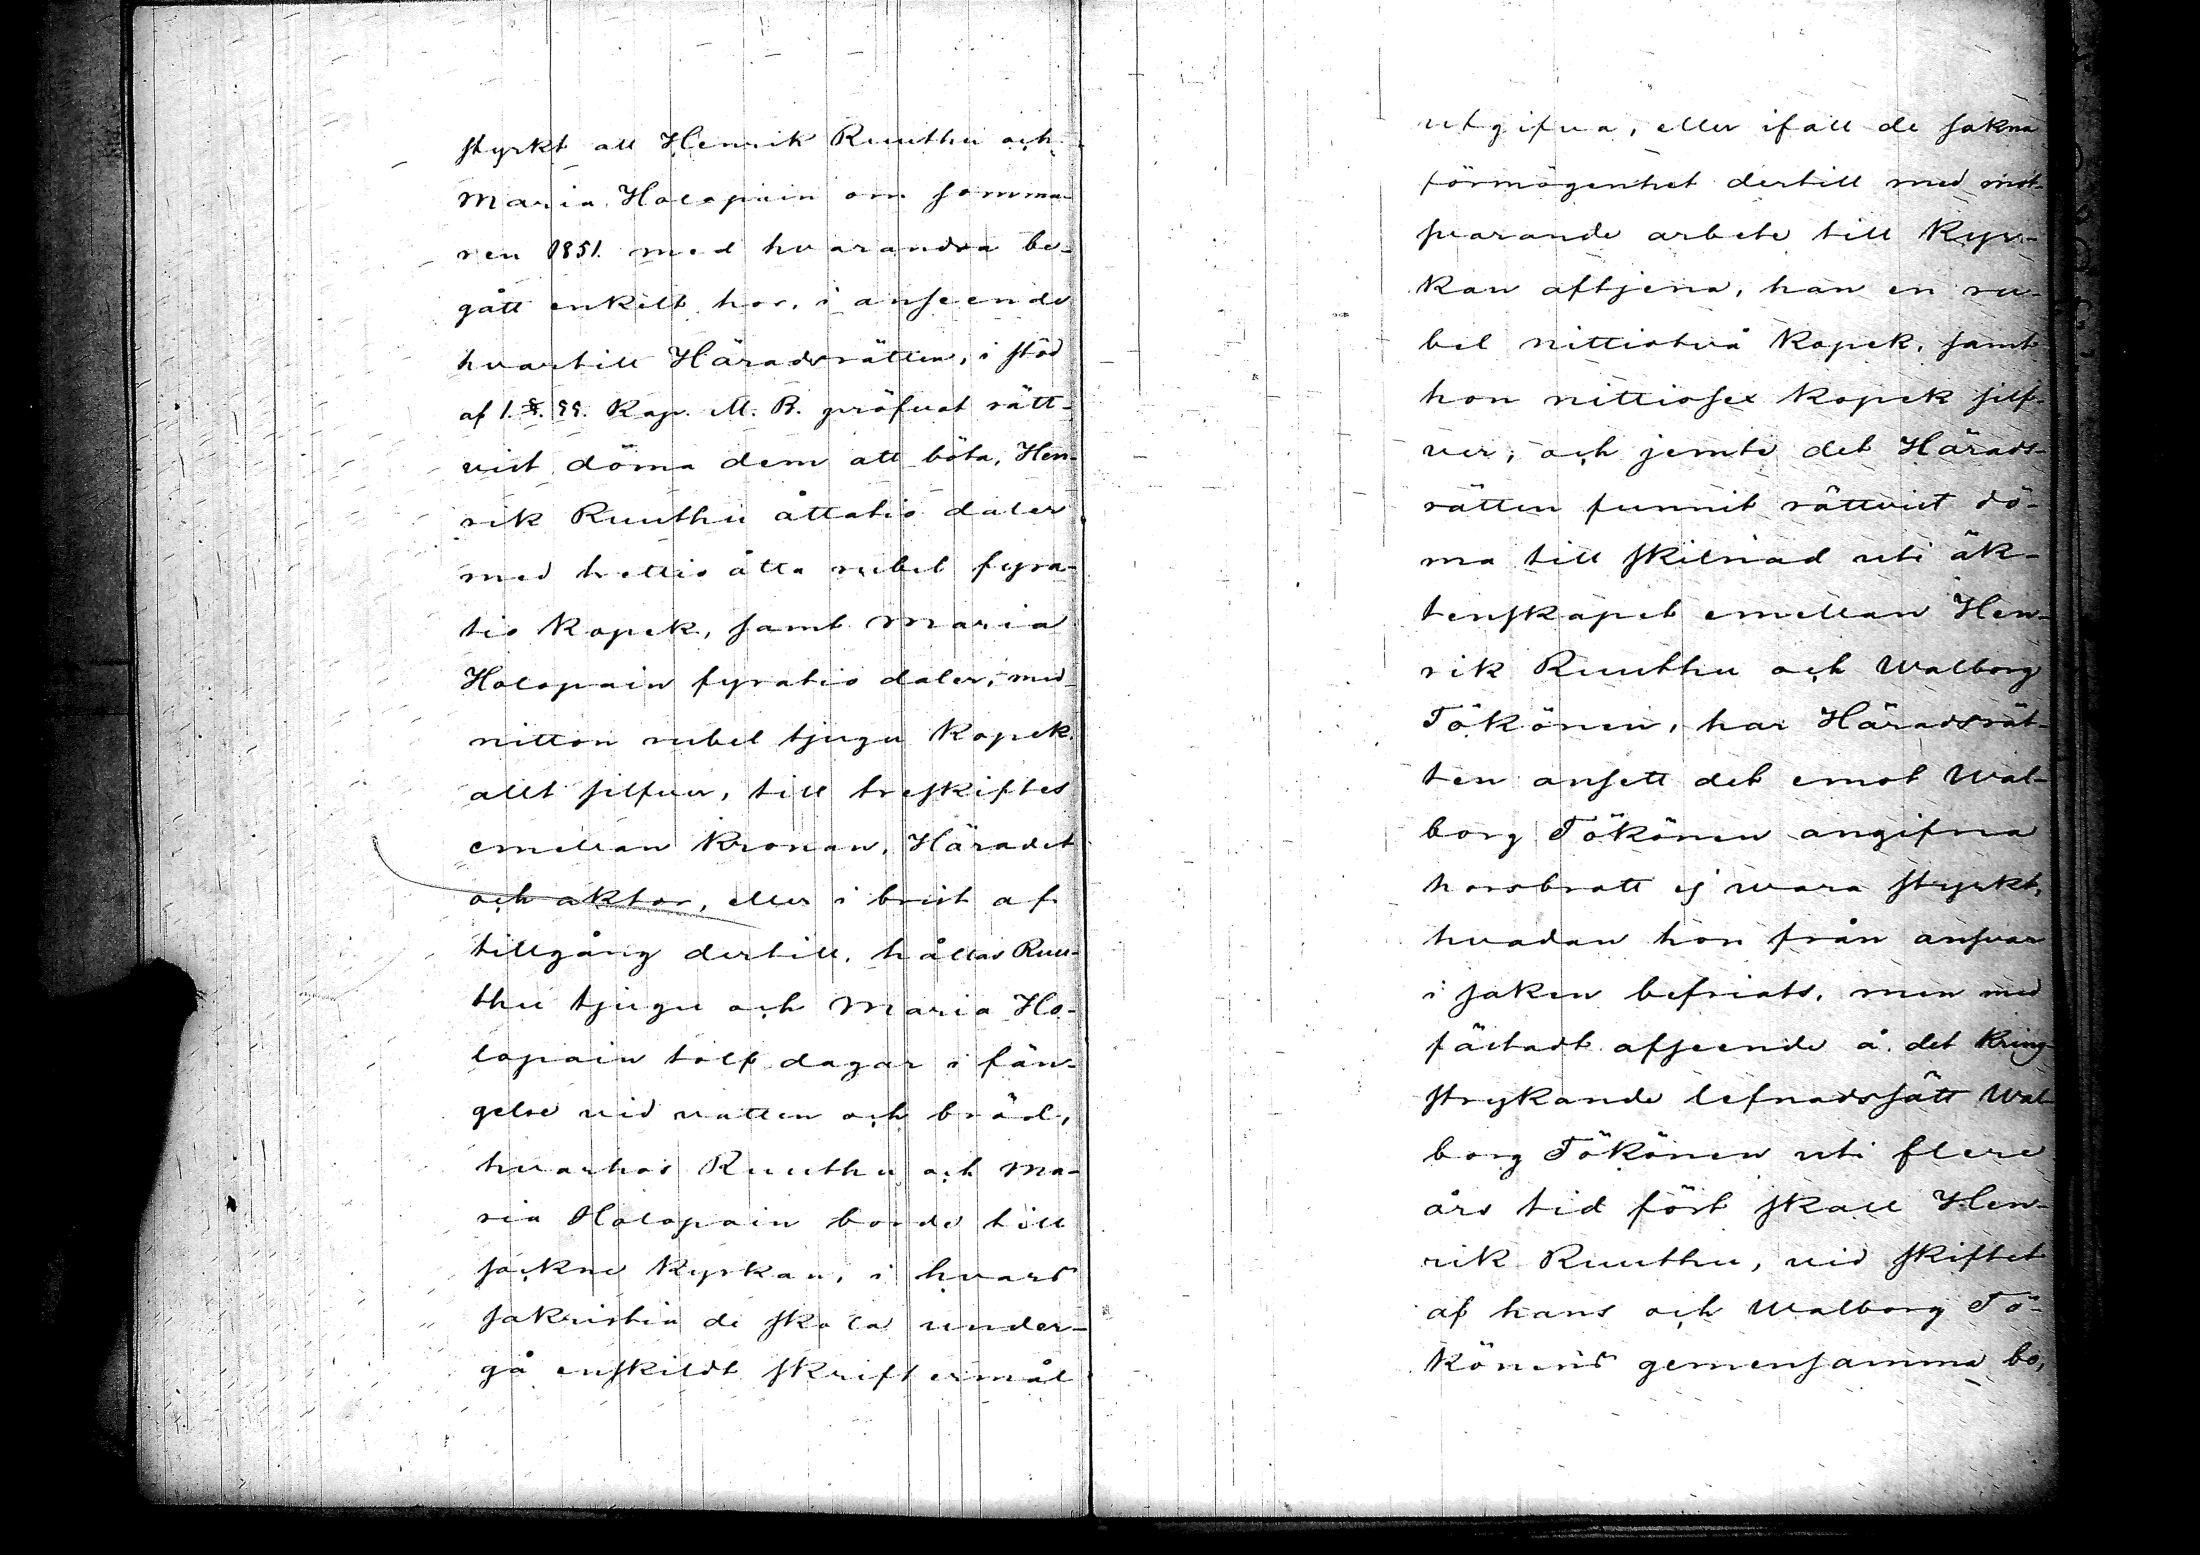 styrkt att Henrik Ruuthu och
Maria Holopain om somma-
ren 1851. med hvarandra be-
gått enkelt hor, i anseende
hvartill Häradsrätten, i stöd
af 1. §. 55. Kap. M. B. pröfvat rätt-
vist döma dem att böta, Hen-
rik Ruuthu åttatio daler
med trettio åtta rubel fyra-
tio kopek, samt Maria
Holopain fyratio daler, med
nitton rubel tjugu kopek
allt silfver, till treskiftes
emellan Kronan, Häradet
och aktor, eller i brist af
tillgång dertill, hållas Ruu-
thu tjugu och Maria Ho-
lopain tolf dagar i fän-
gelse vid vatten och bröd,
hvarhos Ruuthu och Ma-
ria Holopain borde till
sockne kyrkan, i hvars
sakristia de skola under-
gå enskildt skriftermål
utgifva, eller ifall de sakna
förmögenhet dertill med mot-
svarande arbete till kyr-
kan aftjena, han en ru-
bel nittiotvå kopek, samt
hon nittiosex kopek silf-
ver; och jemte det Härads-
rätten funnit rättvist dö-
ma till skilnad uti äk-
tenskapet emellan Hen-
rik Ruuthu och Walborg
Tökönen, har Häradsrät-
ten ansett det emot Wal-
borg Tökönen angifna
horsbrott ej vara styrkt,
hvadan hon från ansvar
i saken befriats, men med
fästadt afseende å det kring-
strykande lefnadssätt Wal-
borg Tökönen uti flere
års tid fört skall Hen-
rik Ruuthu, vid skiftet
af hans och Walborg Tö-
könens gemensamma bo,